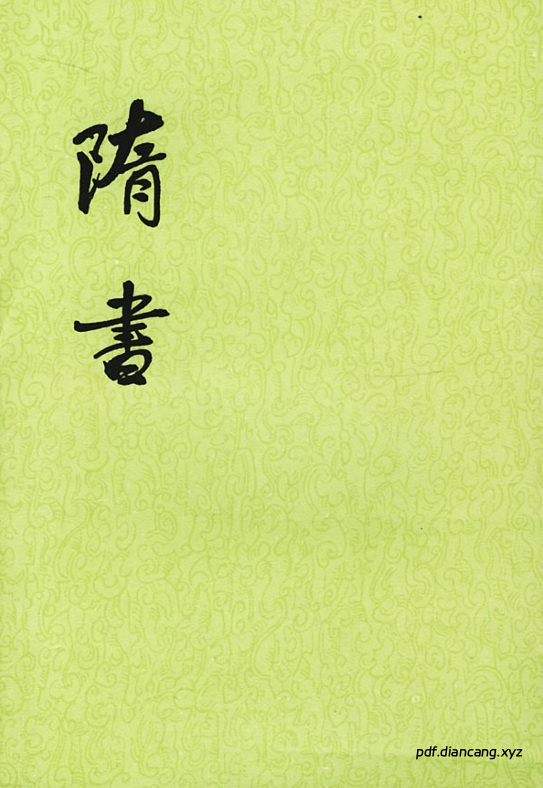 隋書
pdf.diancang.xyz